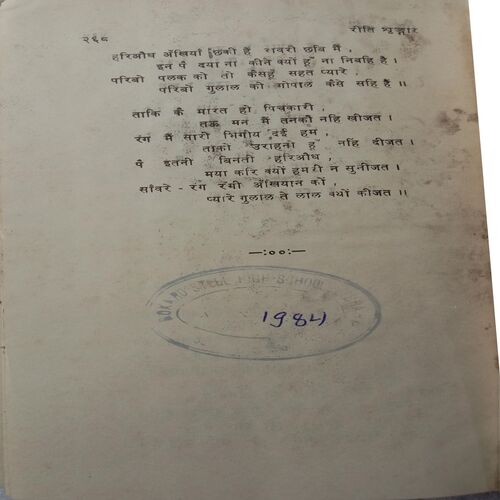 २६८ रीति शृङ्गार
हरिऔध अँखियाँ छकी हैं रावरी छवि मैं,
इन पै दया ना कीने क्यों हू ना निबहि है।
परिबो पलक को तो कैसहू सहत प्यारे,
परिबो गुलाल को गोपाल कैसे सहि है॥
ताकि कै मारत हो पिचकारी,
तऊ मन मैं तनकौ नहिं खीजत।
रंग मैं सारी भिगोय दई हम,
ताको उराहनो हू नहिं दीजत।
पै इतनी बिनती हरिऔध,
मया करि क्यों हमरी न सुनीजत।
साँवरे-रंग रँगी अँखियान कों,
प्यारे गुलाल ते लाल क्यों कीजत॥
—:००:—
BOKARO STEEL HIGH SCHOOL
1984